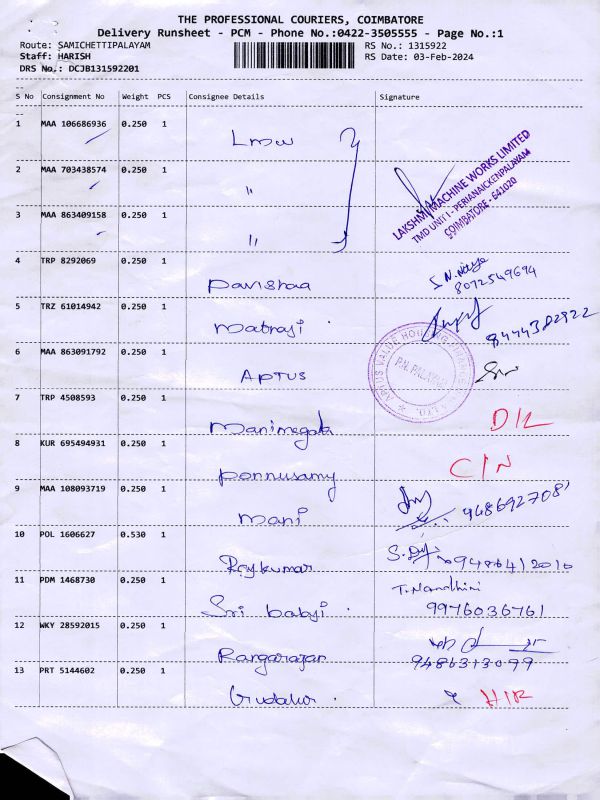 THE PROFESSIONAL COURIERS, COIMBATORE
Delivery Runsheet - PCM - Phone No.:0422-3505555 - Page No.:1
Route: SAMICHETTIPALAYAM RS No.: 1315922
Staff: HARISH RS Date: 03-Feb-2024
DRS No.: DCJB131592201
S No Consignment No Weight PCS Consignee Details Signature
1 MAA 106686936 0.250 1 Lmw
2 MAA 703438574 0.250 1 "
LAKSHMI MACHINE WORKS LIMITED
TMD UNIT I - PERIANAICKENPALAYAM
COIMBATORE - 641020
3 MAA 863409158 0.250 1 "
4 TRP 8292069 0.250 1 Pavishaa 8072549694
5 TRZ 61014942 0.250 1 8444382822
6 MAA 863091792 0.250 1 APTUS
APTUS VALUE HOUSING FINANCE
P.N. PALAYAM
7 TRP 4508593 0.250 1 Manimegala D/L
8 KUR 695494931 0.250 1 Ponnusamy C/N
9 MAA 108093719 0.250 1 Mani 9486927081
10 POL 1606627 0.530 1 Rajkumar 9486412010
11 PDM 1468730 0.250 1 Sri babji T. Nandhini
9976036761
12 WKY 28592015 0.250 1 Rangarajan
9486313099
13 PRT 5144602 0.250 1 H/R